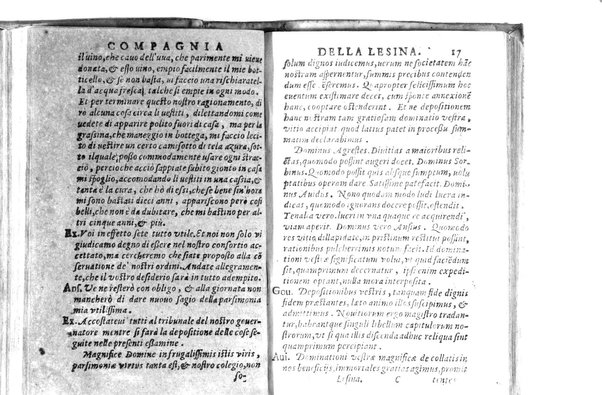 COMPAGNIA
il uino, che cauo dell'uua, che parimente mi viene
donata, & esso uino, empio facilmente il mio bot
ticello, & se non basta, ui faccio una rischiaratel
la d'acqua fresca, talche si empie in ogni modo.
Et per terminare questo ragionamento, di
rò alcuna cosa circa li uestiti, dilettandomi come
uedete di apparire polito fuori di casa, ma per la
grassina, che maneggio in bottega, mi faccio leci
to di uestire un certo camisotto di tela azura, sot
to il quale, posso commodamente usare ogni stra
cio, percioche acciò sappiate subito gionto in casa
mi spoglio, accomodando li uestiti in una cassa, &
tanta è la cura, che hò di essi, che se bene sin' hora
mi sono bastati dieci anni, appariscono però cosi
belli, che non è da dubitare, che mi bastino per al-
tri cinque anni, & più.
Ex. Voi in effetto sete tutto utile. Et noi non solo vi
giudicamo degno di essere nel nostro consortio ac
cettato, ma cercheremo che siate proposto alla cõ
seruatione de' nostri ordini. Andate allegramen-
te, che il vostro desiderio sarà in tutto adempito.
Ans. Ve ne resterò con obligo, & alla giornata non
mancherò di dare nuouo sagio della parsimonia
mia vtilissima.
Ex. Accostateui tutti al tribunale del nostro gouer-
natore mentre si farà la depositione delle cose se-
guite nelle presenti essamine.
Magnifice Domine in frugalissimis istis viris,
parsimoniæ virtus tanta est, & nostro colegio, non
so-
DELLA LESINA. 17
solum dignos iudicemus, uerum ne societatem hãc
nostram aspernentur, summis precibus contenden
dum esse existemus. Quapropter felicissimum hoc
euentum existimare deces, cum sponte annexionẽ
hanc, cooptare ostenderint. Et ne depositionem
hanc nostram tam gratiosam dominatio vestra,
vitio accipiat quod latius patet in processu sum-
matim declarabimus.
Dominus Agrestes. Diuitias a maioribus reli-
ctas, quomodo possint augeri docet. Dominus Sor
binus. Quomodo possit quis absque sumptum, uolu
ptatibus operam dare Satissime patefacit. Domi-
nus Auidus. Nono quodam modo ludi lucra in-
dicas, quo modo ignurans docere possit, ostendit.
Tenalia vero. lucri in vna quaque re acquirendi,
viam aperit. Dominus vero Ansius. Quomodo
res vitio dilapidatæ, in pristinum restitui possint,
rationibus pulcherrimis notum facit. Id domina-
tioni vestræ significatum volui, vt quid faciẽdum
sit, quamprimum decernatur, ipsenim expediti-
onem optant, nulla mora interposita.
Gou. Depositionibus vestris, tanquam fide dignis
fidem præstantes, lato animo illos suscipimus, &
admittimus. Nouitiorum ergo magistro tradan-
tur, habeantque singuli libellum capitulorum no-
strorum, vt si qua illis discenda adhuc reliqua sint
quamprimum percipiant.
Aui. Dominationi vestræ magnificæ de collatis in
nos beneficijs, immortales gratias agimus, promit
Lesina. C tentes